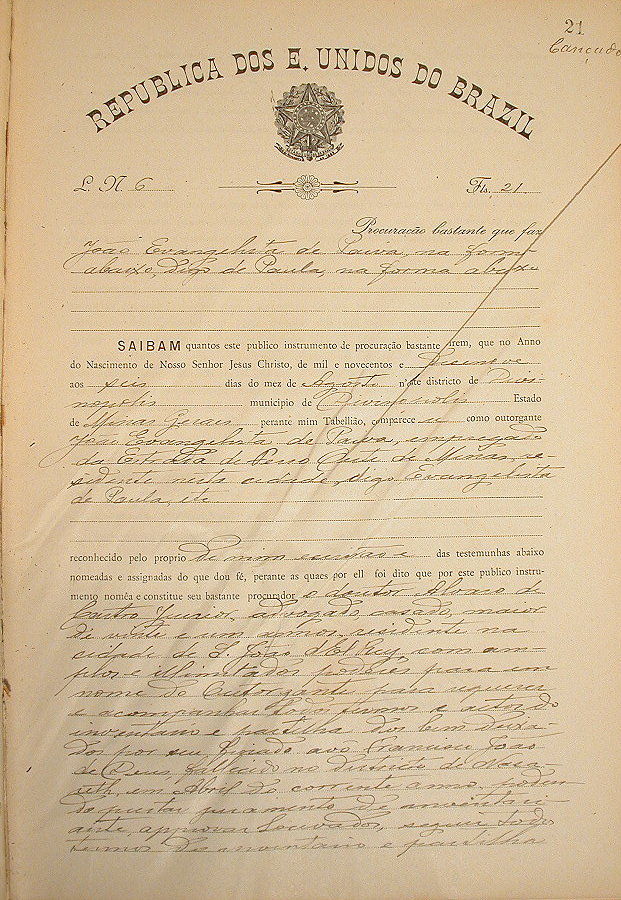 21
Cançado
REPUBLICA DOS E. UNIDOS DO BRAZIL
L. N. 6 Fls. 21
Procuração bastante que faz
João Evangelista de Paiva, na form-
abaixo, digo de Paula, na forma abaixo
SAIBAM quantos este publico instrumento de procuração bastante virem, que no Anno
do Nascimento de Nosso Senhor Jesus Christo, de mil e novecentos e Dezenove
aos seis dias do mez de Agosto n'este districto de Divi-
nopolis municipio de Divinopolis Estado
de Minas Geraes perante mim Tabellião, comparece u como outorgante
João Evangelista de Paiva, empregado
da Estrada de Ferro Oeste de Minas, re-
sidente nesta cidade, digo Evangelista
de Paula, etc
reconhecido pelo proprio de mim escrivão e das testemunhas abaixo
nomeadas e assignadas do que dou fé, perante as quaes por ell foi dito que por este publico instru-
mento nomêa e constitue seu bastante procurador o doutor Alvaro de
Castro Junior, advogado, casado, maior
de vinte e um annos, residente na
cidade de S. João d'El Rey, com am-
plos e illimitados poderes para em
nome do Outorgante para requerer
e acompanhar todos termos e actos do
inventario e partilha dos bens deixa-
dos por seu finado avô Francisco João
de Deus fallecido no districto de Nasa-
reth, em Abril do corrente anno, poden-
do prestar juramento de inventari-
ante, approvar louvados, seguir todos
termos de inventario e partilha